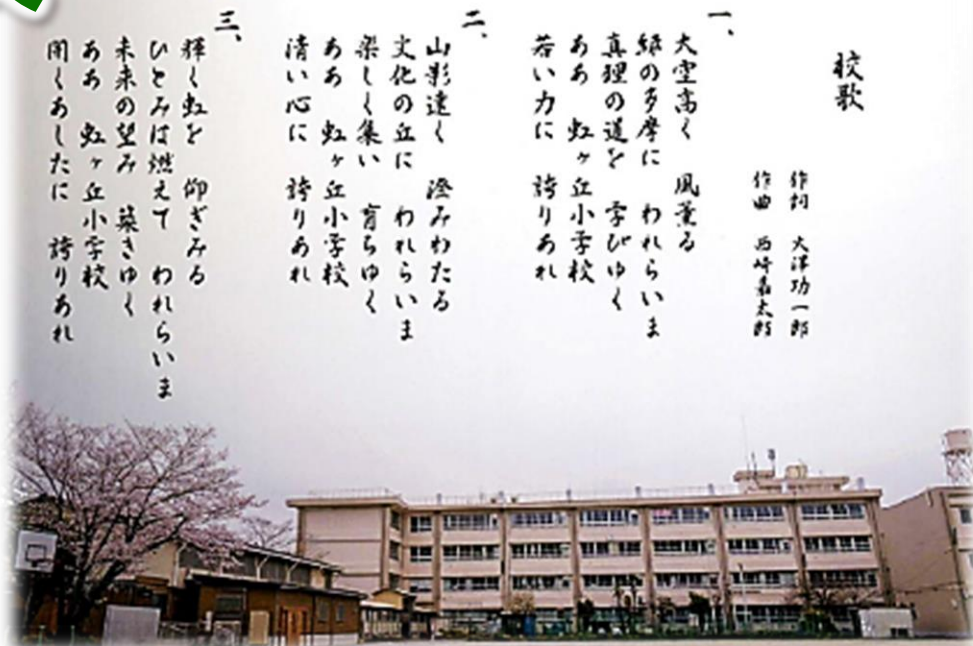 校歌
作詞 大津功一郎
作曲 西崎嘉太郎
一、
大空高く 風薫る
緑の多摩に われらいま
真理の道を 学びゆく
ああ 虹ヶ丘小学校
若い力に 誇りあれ
二、
山影遠く 澄みわたる
文化の丘に われらいま
楽しく集い 育ちゆく
ああ 虹ヶ丘小学校
清い心に 誇りあれ
三、
輝く虹を 仰ぎみる
ひとみは燃えて われらいま
未来の望み 築きゆく
ああ 虹ヶ丘小学校
開くあしたに 誇りあれ